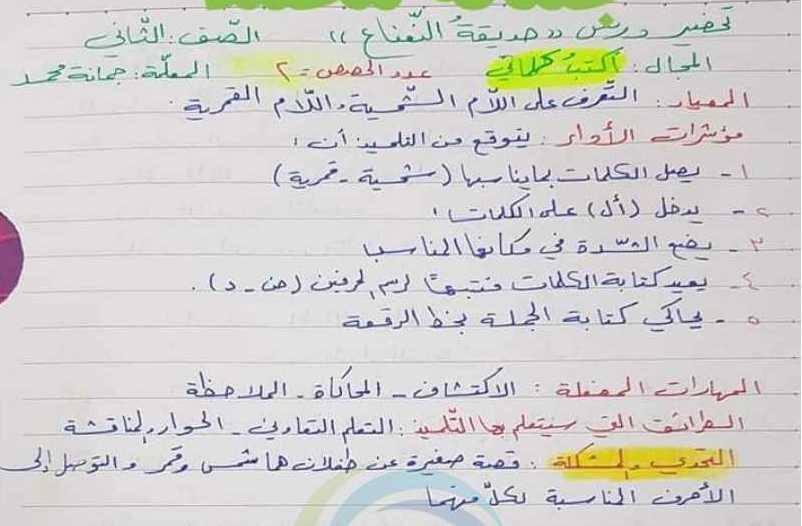 تحضير درس «حديقة النّعناع» الصّف: الثّاني
المجال: أكتبُ كلماتي عدد الحصص: ٢ المعلّمة: جمانة محمد
المعيار: التّعرف على اللّام الشّمسية واللّام القمرية.
مؤشرات الأداء: يتوقع من التلميذ أن:
١- يصل الكلمات بما يناسبها (شمسية - قمرية)
٢- يدخل (أل) على الكلمات:
٣- يضع الشّدة في مكانها المناسب
٤- يعيد كتابة الكلمات منتبهاً لرسم الحرفين (ص - د).
٥- يحاكي كتابة الجملة بخط الرقعة
المهارات المفعلة: الاكتشاف - المحاكاة - الملاحظة
الطرائق التي سيتعلم بها التّلميذ: التعلم التعاوني - الحوار والمناقشة
التحدي والمشكلة: قصة صغيرة عن طفلان هما شمس وقمر والتوصل إلى
الأحرف المناسبة لكلّ منهما